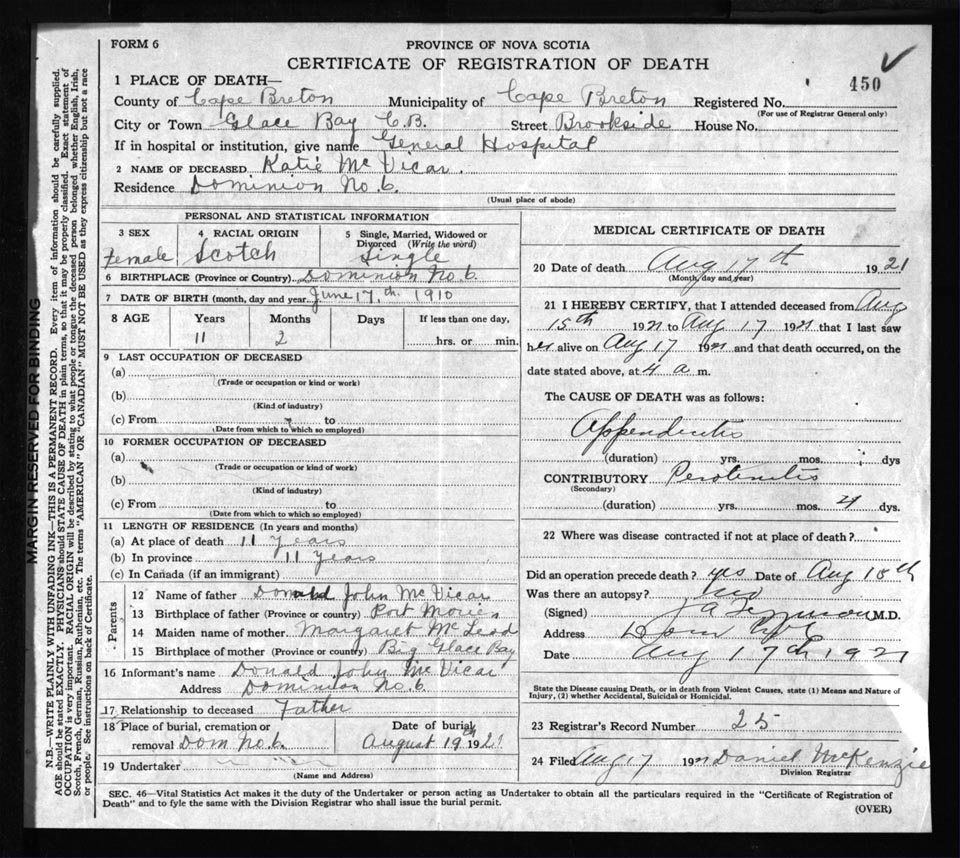 FORM 6
PROVINCE OF NOVA SCOTIA
CERTIFICATE OF REGISTRATION OF DEATH
450
1 PLACE OF DEATH—
County of Cape Breton Municipality of Cape Breton Registered No.
(For use of Registrar General only)
City or Town Glace Bay C.B. Street Brookside House No.
If in hospital or institution, give name General Hospital
2 NAME OF DECEASED Katie Mc Vicar.
Residence Dominion No. 6.
(Usual place of abode)
PERSONAL AND STATISTICAL INFORMATION
3 SEX 4 RACIAL ORIGIN 5 Single, Married, Widowed or Divorced (Write the word)
Female Scotch Single
6 BIRTHPLACE (Province or Country) Dominion No. 6.
7 DATE OF BIRTH (month, day and year) June 17, th. 1910
8 AGE Years Months Days If less than one day,
11 2 hrs. or min.
9 LAST OCCUPATION OF DECEASED
(a)
(Trade or occupation or kind or work)
(b)
(Kind of industry)
(c) From to
(Date from which to which so employed)
10 FORMER OCCUPATION OF DECEASED
(a)
(Trade or occupation or kind of work)
(b)
(Kind of industry)
(c) From to
(Date from which to which so employed)
11 LENGTH OF RESIDENCE (In years and months)
(a) At place of death 11 years
(b) In province 11 years
(c) In Canada (if an immigrant)
Parents
12 Name of father Donald John Mc Vicar
13 Birthplace of father (Province or country) Port Morien
14 Maiden name of mother Margaret Mc Leod
15 Birthplace of mother (Province or country) Big Glace Bay
16 Informant's name Donald John Mc Vicar
Address Dominion No. 6
17 Relationship to deceased Father
18 Place of burial, cremation or removal Dom No. 6. Date of burial August 19th 1921
19 Undertaker
(Name and Address)
MEDICAL CERTIFICATE OF DEATH
20 Date of death Aug 17th 1921
(Month, day and year)
21 I HEREBY CERTIFY, that I attended deceased from Aug
15th 1921 to Aug 17 1921 that I last saw
her alive on Aug 17 1921 and that death occurred, on the
date stated above, at 4 a m.
The CAUSE OF DEATH was as follows:
Appendicitis
(duration) yrs. mos. dys
CONTRIBUTORY Peritonitis
(Secondary)
(duration) yrs. mos. dys.
22 Where was disease contracted if not at place of death?
Did an operation precede death? yes Date of Aug
Was there an autopsy? no
(Signed) M.D.
Address
Date Aug 17th 1921
State the Disease causing Death, or in death from Violent Causes, state (1) Means and Nature of
Injury, (2) whether Accidental, Suicidal or Homicidal.
23 Registrar's Record Number 25
24 Filed Aug 17 1921 Daniel McKenzie
Division Registrar
SEC. 46—Vital Statistics Act makes it the duty of the Undertaker or person acting as Undertaker to obtain all the particulars required in the "Certificate of Registration of
Death" and to fyle the same with the Division Registrar who shall issue the burial permit.
(OVER)
MARGIN RESERVED FOR BINDING
N.B.—WRITE PLAINLY WITH UNFADING INK—THIS IS A PERMANENT RECORD. Every item of information should be carefully supplied.
AGE should be stated EXACTLY. PHYSICIANS should STATE CAUSE OF DEATH in plain terms, so that it may be properly classified. Exact statement of
OCCUPATION is very important. RACIAL ORIGIN will be described by stating to what people or tongue the deceased person belonged whether English, Irish,
Scotch, French, German, Russian, Ruthenian, etc. The terms "AMERICAN" OR "CANADIAN" MUST NOT BE USED as they express citizenship but not a race
or people. See instructions on back of Certificate.